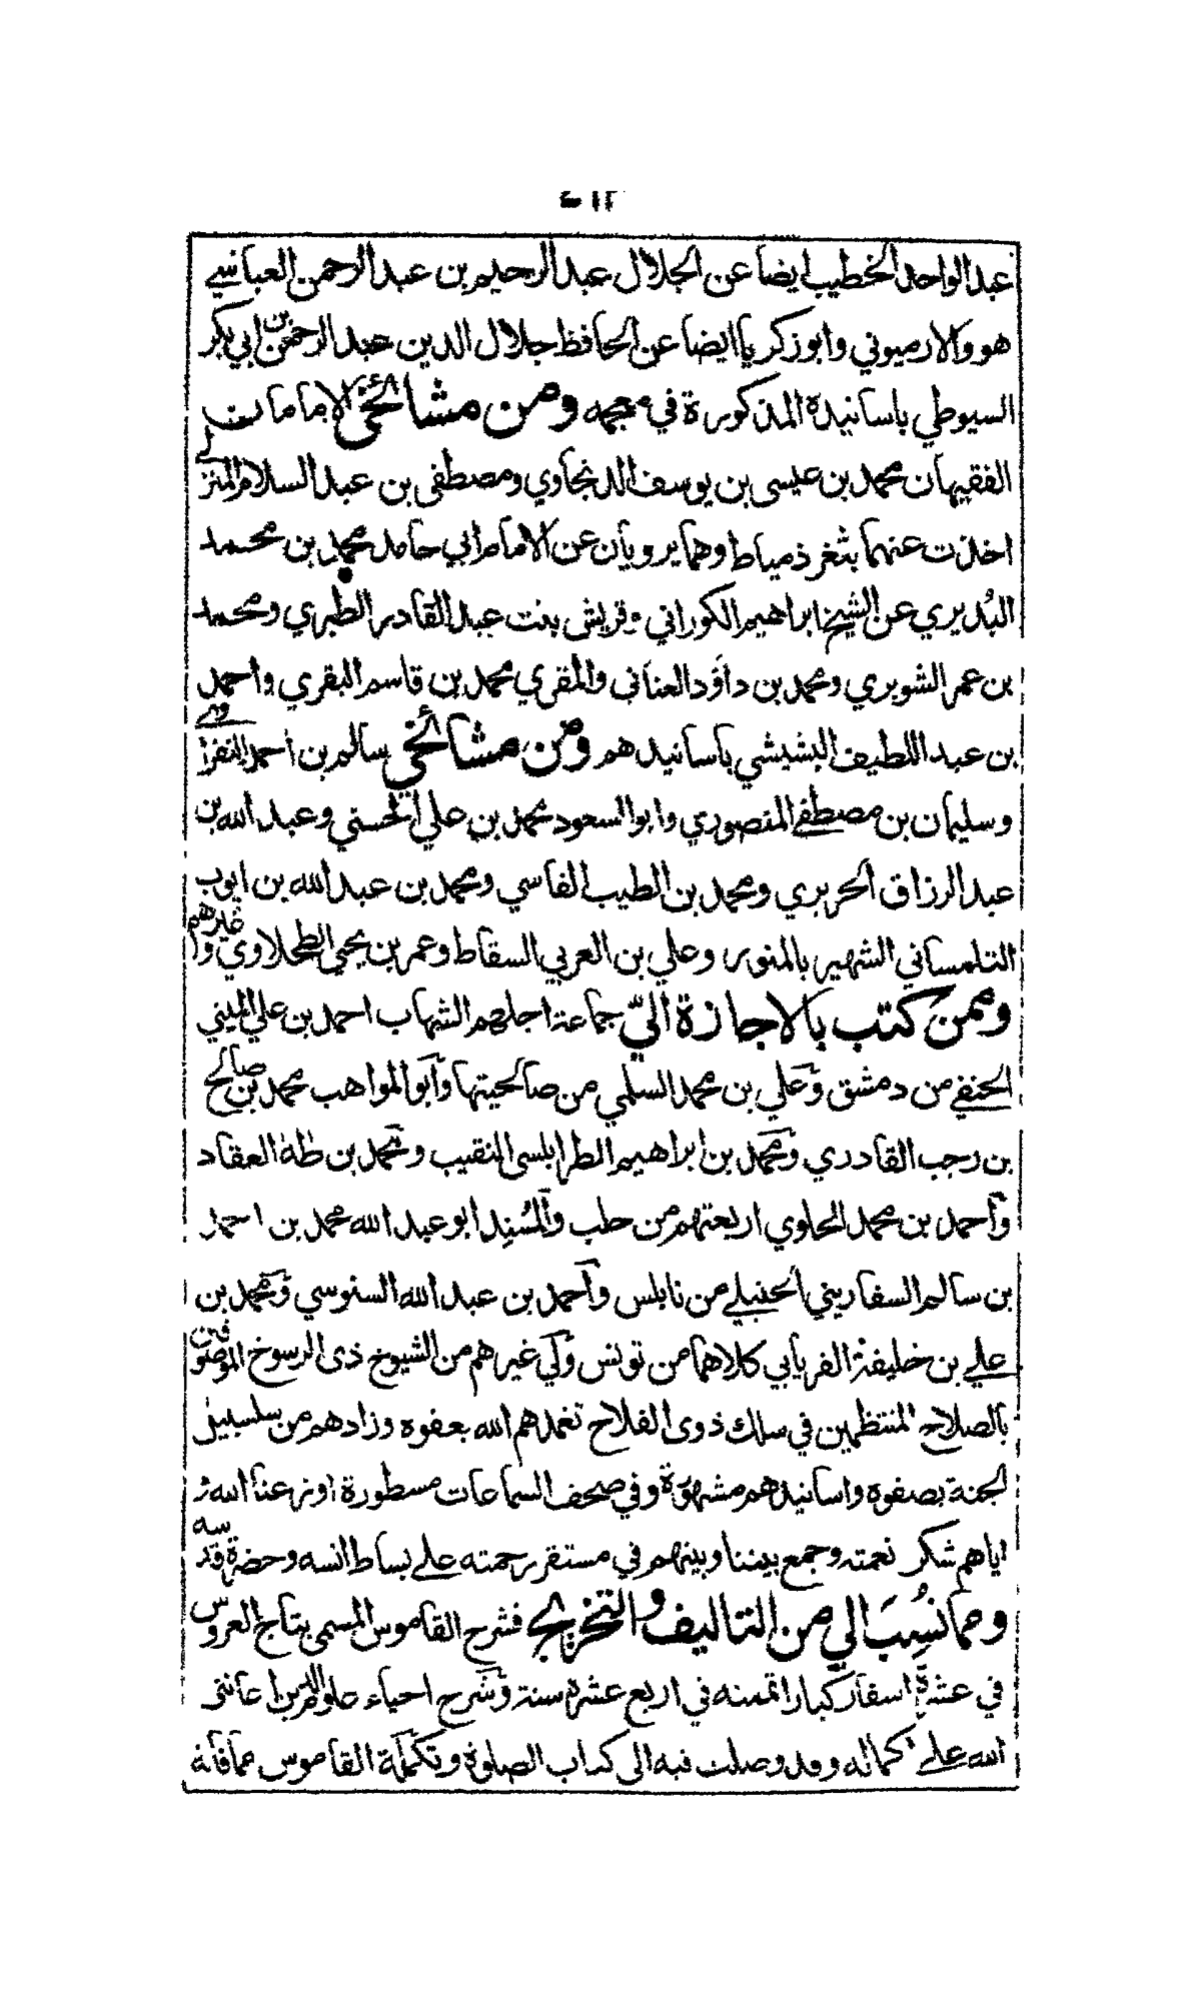 عبد الواحد الخطيب ايضا عن الجلال عبد الرحيم بن عبد الرحمن العباسي
هو والارميوني وابو زكريا ايضا عن الحافظ جلال الدين عبد الرحمن بن ابي بكر
السيوطي باسانيده المذكورة في معجمه ومن مشائخي الامامان
الفقيهان محمد بن عيسى بن يوسف الدنجاوي ومصطفى بن عبد السلام المنزلي
اخذت عنهما بثغر ذمياط وهما يرويان عن الامام ابي حامد محمد بن محمد
البُديري عن الشيخ ابراهيم الكوراني وقريش بنت عبد القادر الطبري ومحمد
بن عمر الشوبري ومحمد بن داؤد العناني والمقري محمد بن قاسم البقري واحمد
بن عبد اللطيف البشبيشي باسانيدهم ومن مشائخي سالم بن أحمد النفراوي
وسليمان بن مصطفے المنصوري وابو السعود محمد بن علي الحسني وعبد الله بن
عبد الرزاق الحريري ومحمد بن الطيب الفاسي ومحمد بن عبد الله بن ايوب
التلمساني الشهير بالمنور وعلي بن العربي السقاط وعمر بن يحيى الطحلاوي وغيرهم
وممن كتب بالاجازة اليّ جماعة اجلهم الشهاب احمد بن علي المنيني
الحنفے من دمشق وعلي بن محمد السلمي من صالحيتها وأبو المواهب محمد بن صالح
بن رجب القادري ومحمد بن ابراهيم الطرابلسى النقيب ومحمد بن طه العقاد
وأحمد بن محمد الحلوي اربعتهم من حلب والمُسنِد ابو عبد الله محمد بن احمد
بن سالم السفاريني الحنبلے من نابلس وأحمد بن عبد الله السنوسي ومحمد بن
علے بن خليفة الغرياني كلاهما من تونس وفي غيرهم من الشيوخ ذى الرسوخ الموصوفين
بالصلاح المنتظمين في سلك ذوى الفلاح تغمدهم الله بعفوه وزادهم من سلسبيل
الجنة بصفوه واسانيدهم مشهورة وفي صحف السماعات مسطورة اوزعنا الله و
اياهم شكر نعمته وجمع بيننا وبينهم في مستقر رحمته علے بساط انسه وحضرة قدسه
ومما نُسِبَ الي من التاليف والتخريج فشرح القاموس المسمى بتاج العروس
في عشرة اسفار كبار اتممته في اربع عشرة سنة وشرح احياء علوم الدين اعانني
الله علے اكماله وقد وصلت فيه الى كتاب الصلوة وتكملة القاموس مما فاته